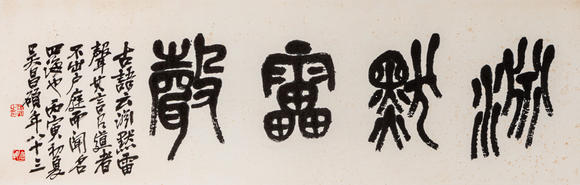 渊默雷聲
古語云渊默雷
聲其言有道者
不出户庭而聞名
四遠也丙寅初夏
吴昌碩年八十三